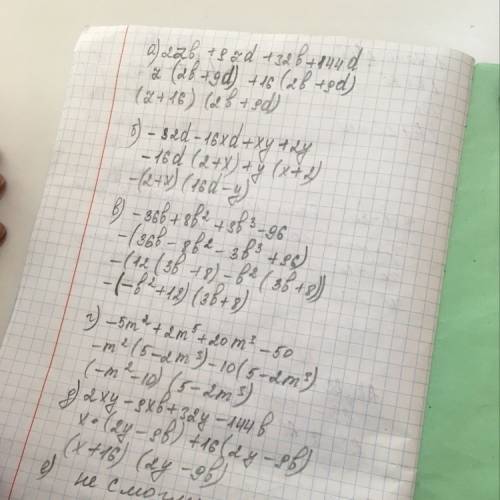 а) 2zb + 9zd + 32b + 144d
z (2b + 9d) + 16 (2b + 9d)
(z + 16) (2b + 9d)
б) - 32d - 16xd + xy + 2y
- 16d (2 + x) + y (x + 2)
- (2 + x) (16d - y)
в) - 36b + 8b² + 3b³ - 96
- (36b - 8b² - 3b³ + 96)
- (12 (3b + 8) - b² (3b + 8))
- (-b² + 12) (3b + 8)
г) - 5m² + 2m⁵ + 20m³ - 50
- m² (5 - 2m³) - 10 (5 - 2m³)
(-m² - 10) (5 - 2m³)
д) 2xy - 9xb + 32y - 144b
x • (2y - 9b) + 16 (2y - 9b)
(x + 16) (2y - 9b)
е) не